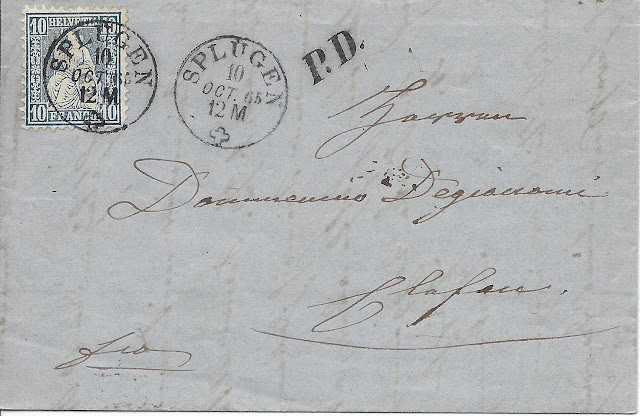 10 HELVETIA 10
10 FRANCO 10
SPLUGEN
10
OCT. 65
12 M
SPLUGEN
10
OCT. 65
12 M
P.D.
Herren
Dommenico Degiacomi
Clefen.
fco